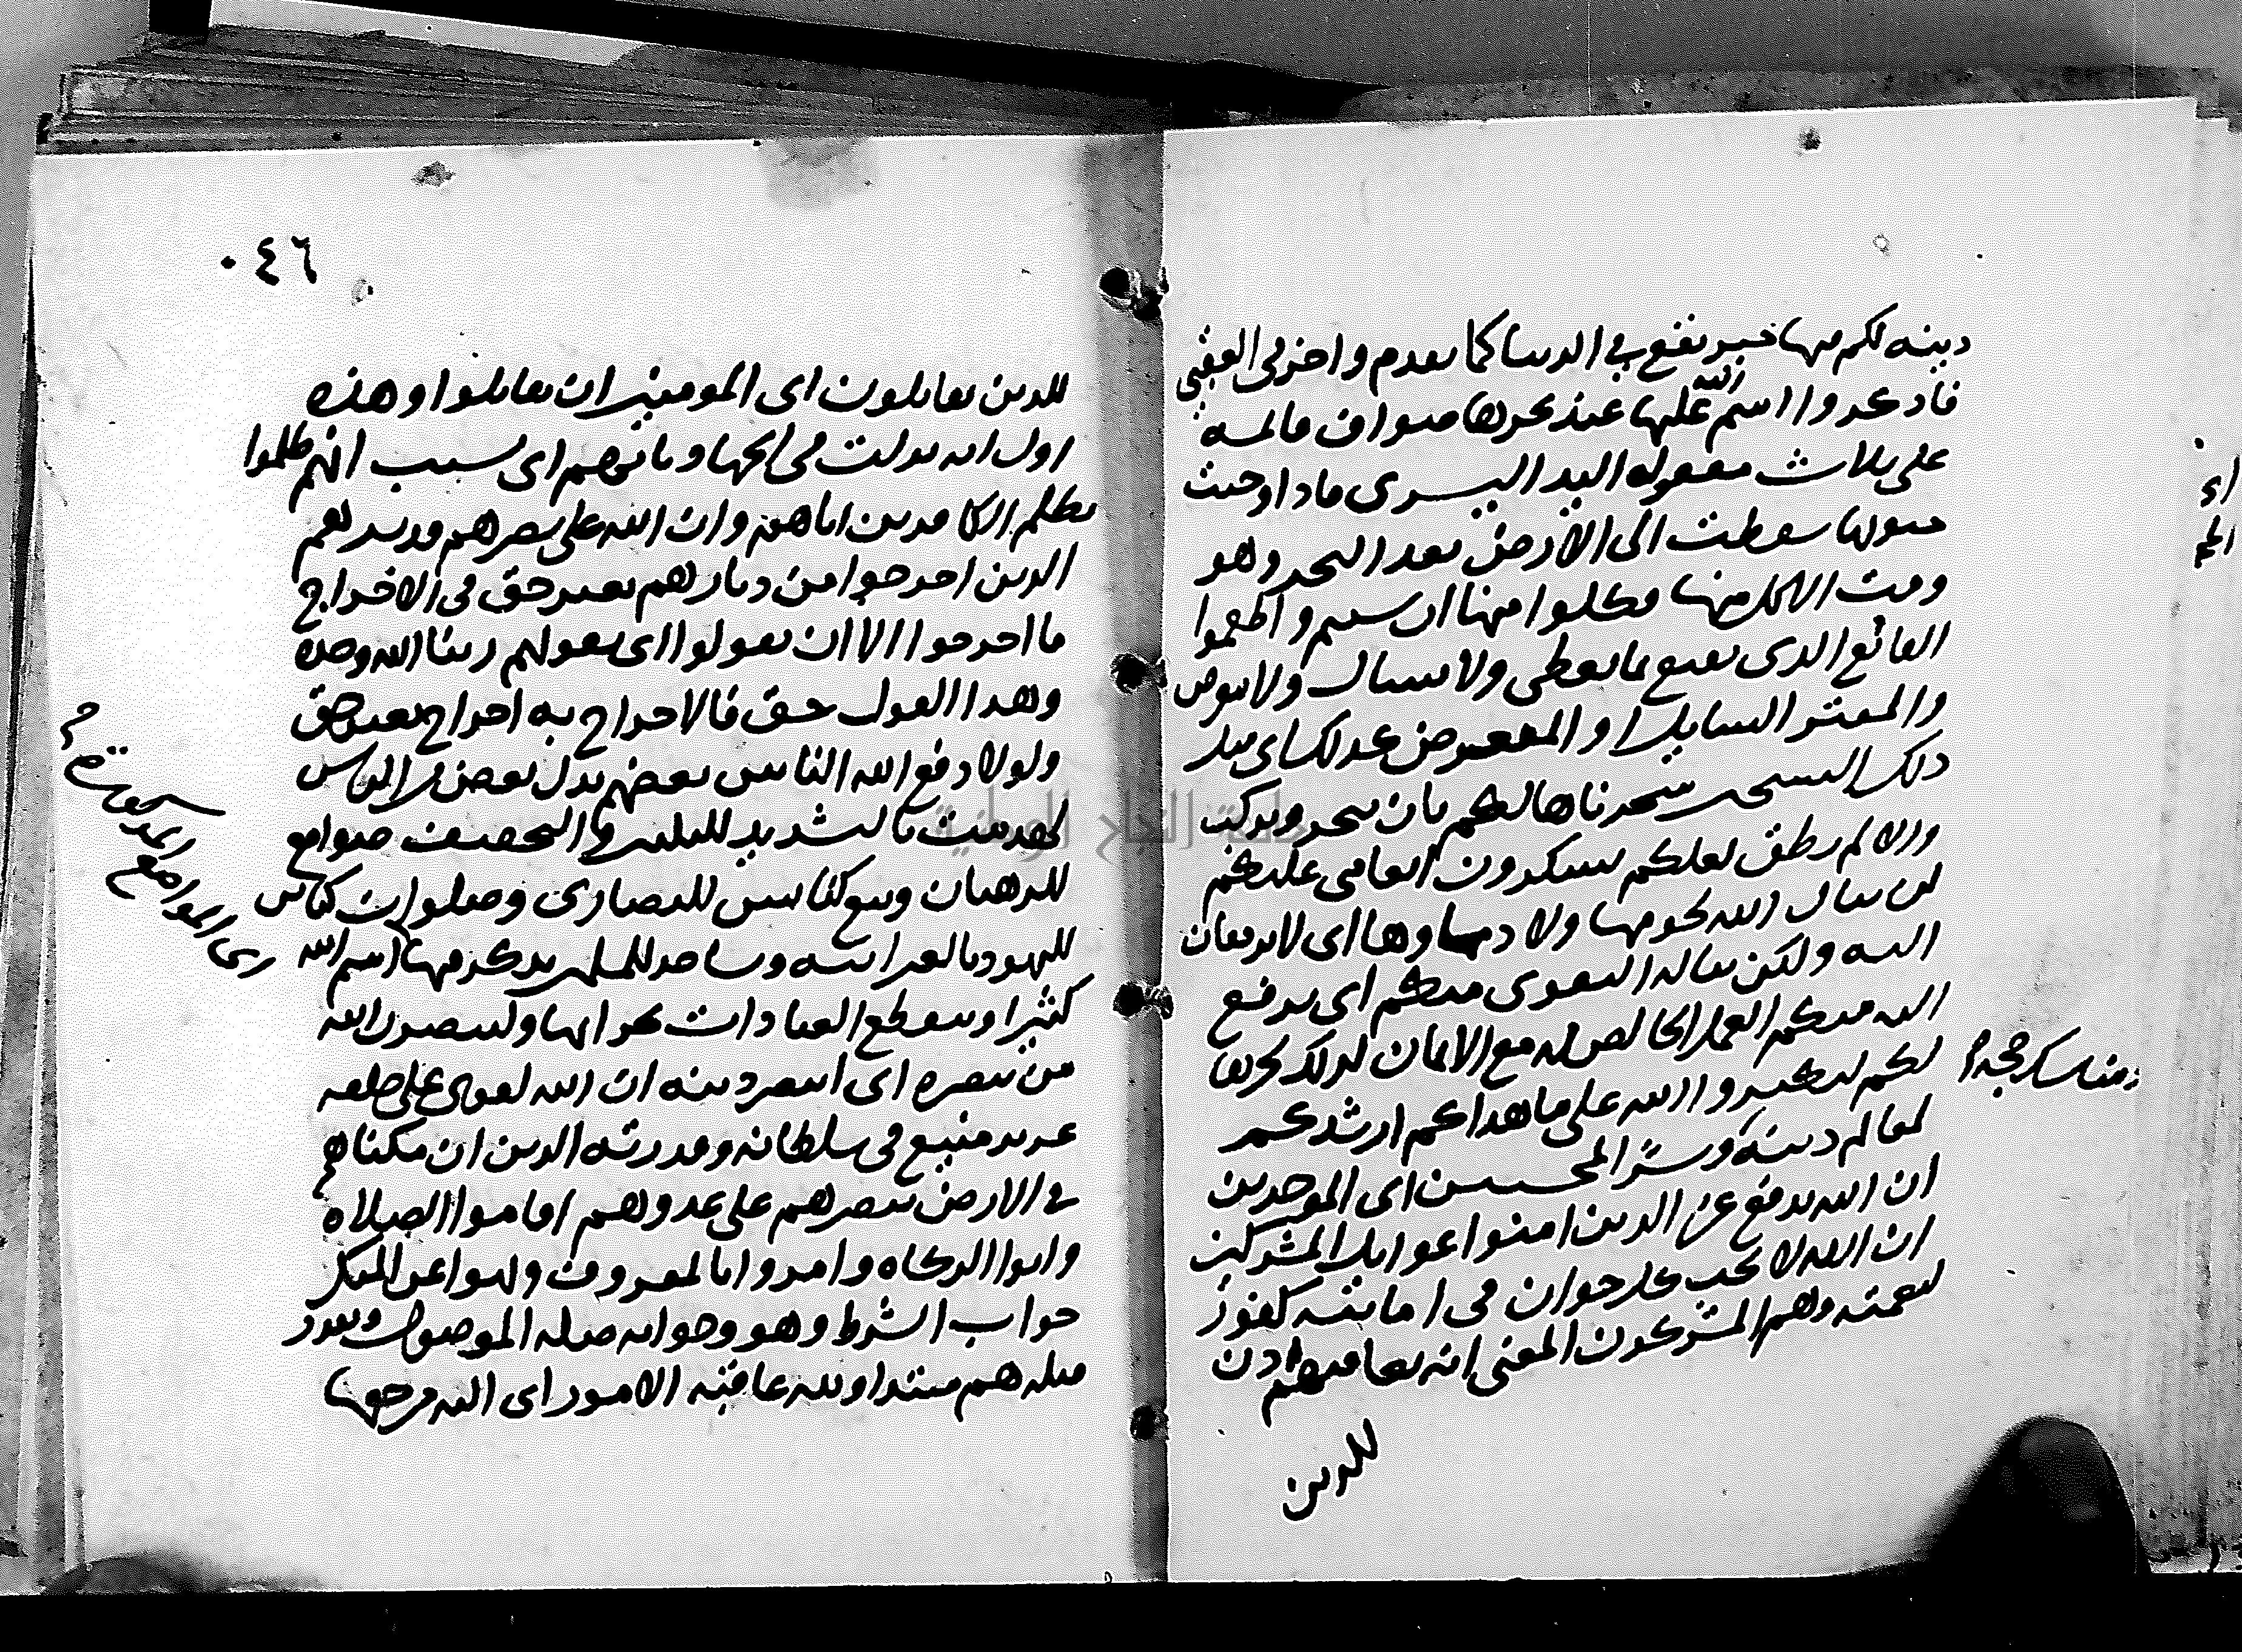 دينه لكم فيها خير نفع في الدنيا كما تقدم واجر في العقبى
فاذكروا اسم الله عليها عند نحرها صواف قائمة
على ثلاث معقولة اليد اليسرى فاذا وجبت
جنوبها سقطت الى الارض بعد النحر وهو
وقت الاكل منها فكلوا منها ان شيتم واطعموا
القانع الذي يقنع بما يعطى ولا يسال ولا يتعرض
والمعتر السايل او المتعرض كذلك اي مثل
ذلك التسخير سخرناها لكم بان تنحر وتركب
والا لم تطق لعلكم تشكرون انعامي عليكم
لن ينال الله لحومها ولا دماوها اي لا يرفعان
اليه ولكن يناله التقوى منكم اي يرفع
اليه منكم العمل الخالص له مع الايمان كذلك سخرها
لكم لتكبروا الله على ما هداكم ارشدكم
لمعالم دينه وبشر المحسنين اي الموحدين
ان الله يدفع عن الذين امنوا غوايل المشركين
ان الله لا يحب كل خوان في امانته كفور
لنعمته وهم المشركون المعنى انه يعاقبهم اذن
للذين
ومناسك حجه
٠٤٦
للذين يقاتلون اي المومنين ان يقاتلوا وهذه
اول اية نزلت في الجهاد بانهم اي بسبب انهم ظلموا
بظلم الكافرين اياهم وان الله على نصرهم لقدير هم
الذين اخرجوا من ديارهم بغير حق في الاخراج
ما اخرجوا الا ان يقولوا اي بقولهم ربنا الله وحده
وهذا القول حق فالاخراج به اخراج بغير حق
ولولا دفع الله الناس بعضهم بدل بعض من الناس
لهدمت بالتشديد للتكثير والتخفيف صوامع
للرهبان وبيع كنايس للنصارى وصلوات كنايس
لليهود بالعبرانية ومساجد للمسلمين يذكر فيها اسم الله
كثيرا وتنقطع العبادات بخرابها ولينصرن الله
من ينصره اي ينصر دينه ان الله لقوي على خلقه
عزيز منيع في سلطانه وقدرته الذين ان مكناهم
في الارض بنصرهم على عدوهم اقاموا الصلاه
واتوا الزكاه وامروا بالمعروف ونهوا عن المنكر
جواب الشرط وهو وجوابه صلة الموصول ويقدر
قبله هم مبتدا ولله عاقبة الامور اي اليه مرجعها
اي المواضع المذكورة